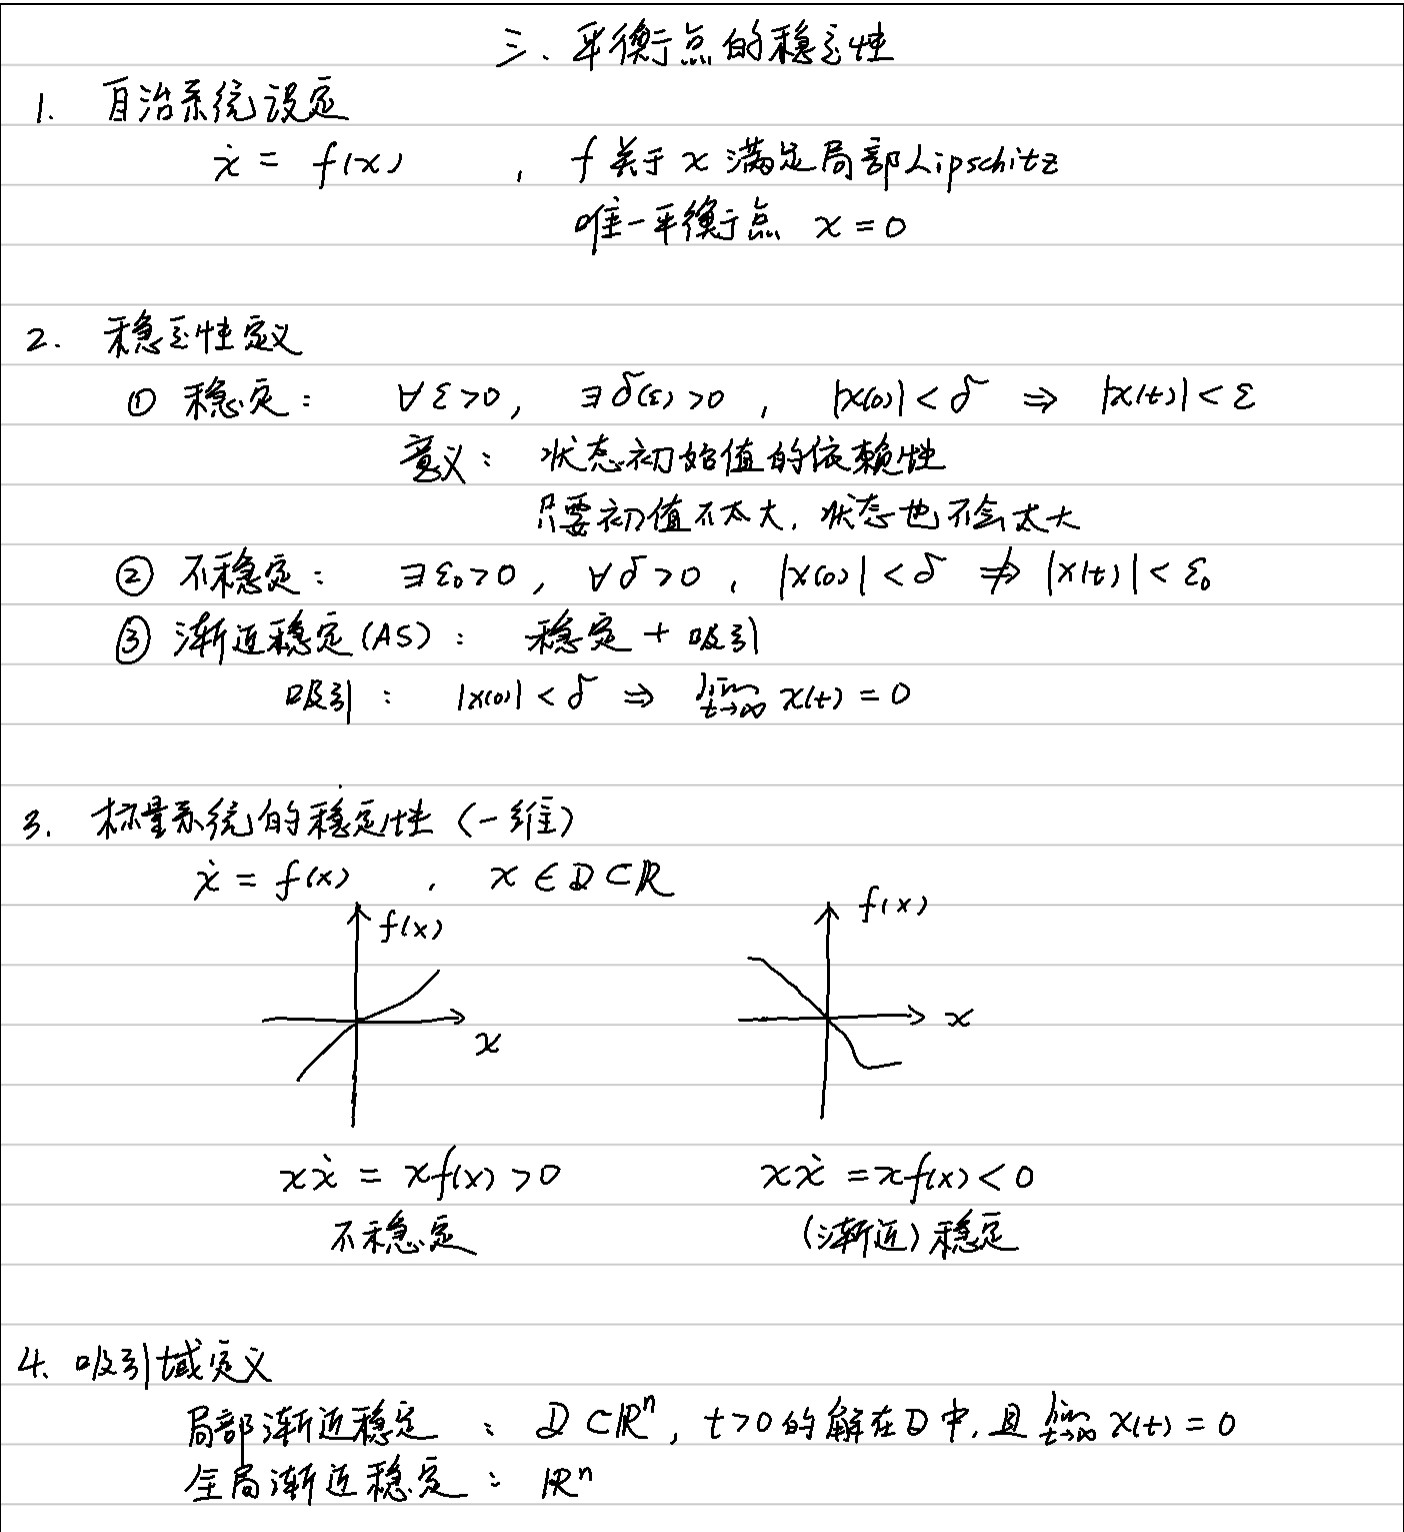 三、平衡点的稳定性
1. 自治系统设定
ẋ = f(x) , f 关于 x 满足局部Lipschitz
唯一平衡点 x = 0
2. 稳定性定义
① 稳定： ∀ε>0, ∃δ(ε)>0, |x(0)|<δ ⇒ |x(t)|<ε
意义： 状态初始值的依赖性
只要初值不太大, 状态也不会太大
② 不稳定： ∃ε₀>0, ∀δ>0, |x(0)|<δ ⇏ |x(t)|<ε₀
③ 渐近稳定(AS)： 稳定 + 吸引
吸引： |x(0)|<δ ⇒ lim t→∞ x(t) = 0
3. 标量系统的稳定性 (一维)
ẋ = f(x) , x ∈ D ⊂ ℝ
f(x) f(x)
x x
xẋ = xf(x) > 0 xẋ = xf(x) < 0
不稳定 (渐近) 稳定
4. 吸引域定义
局部渐近稳定 ： D ⊂ ℝⁿ, t>0 的解在 D 中, 且 lim t→∞ x(t) = 0
全局渐近稳定 ： ℝⁿ